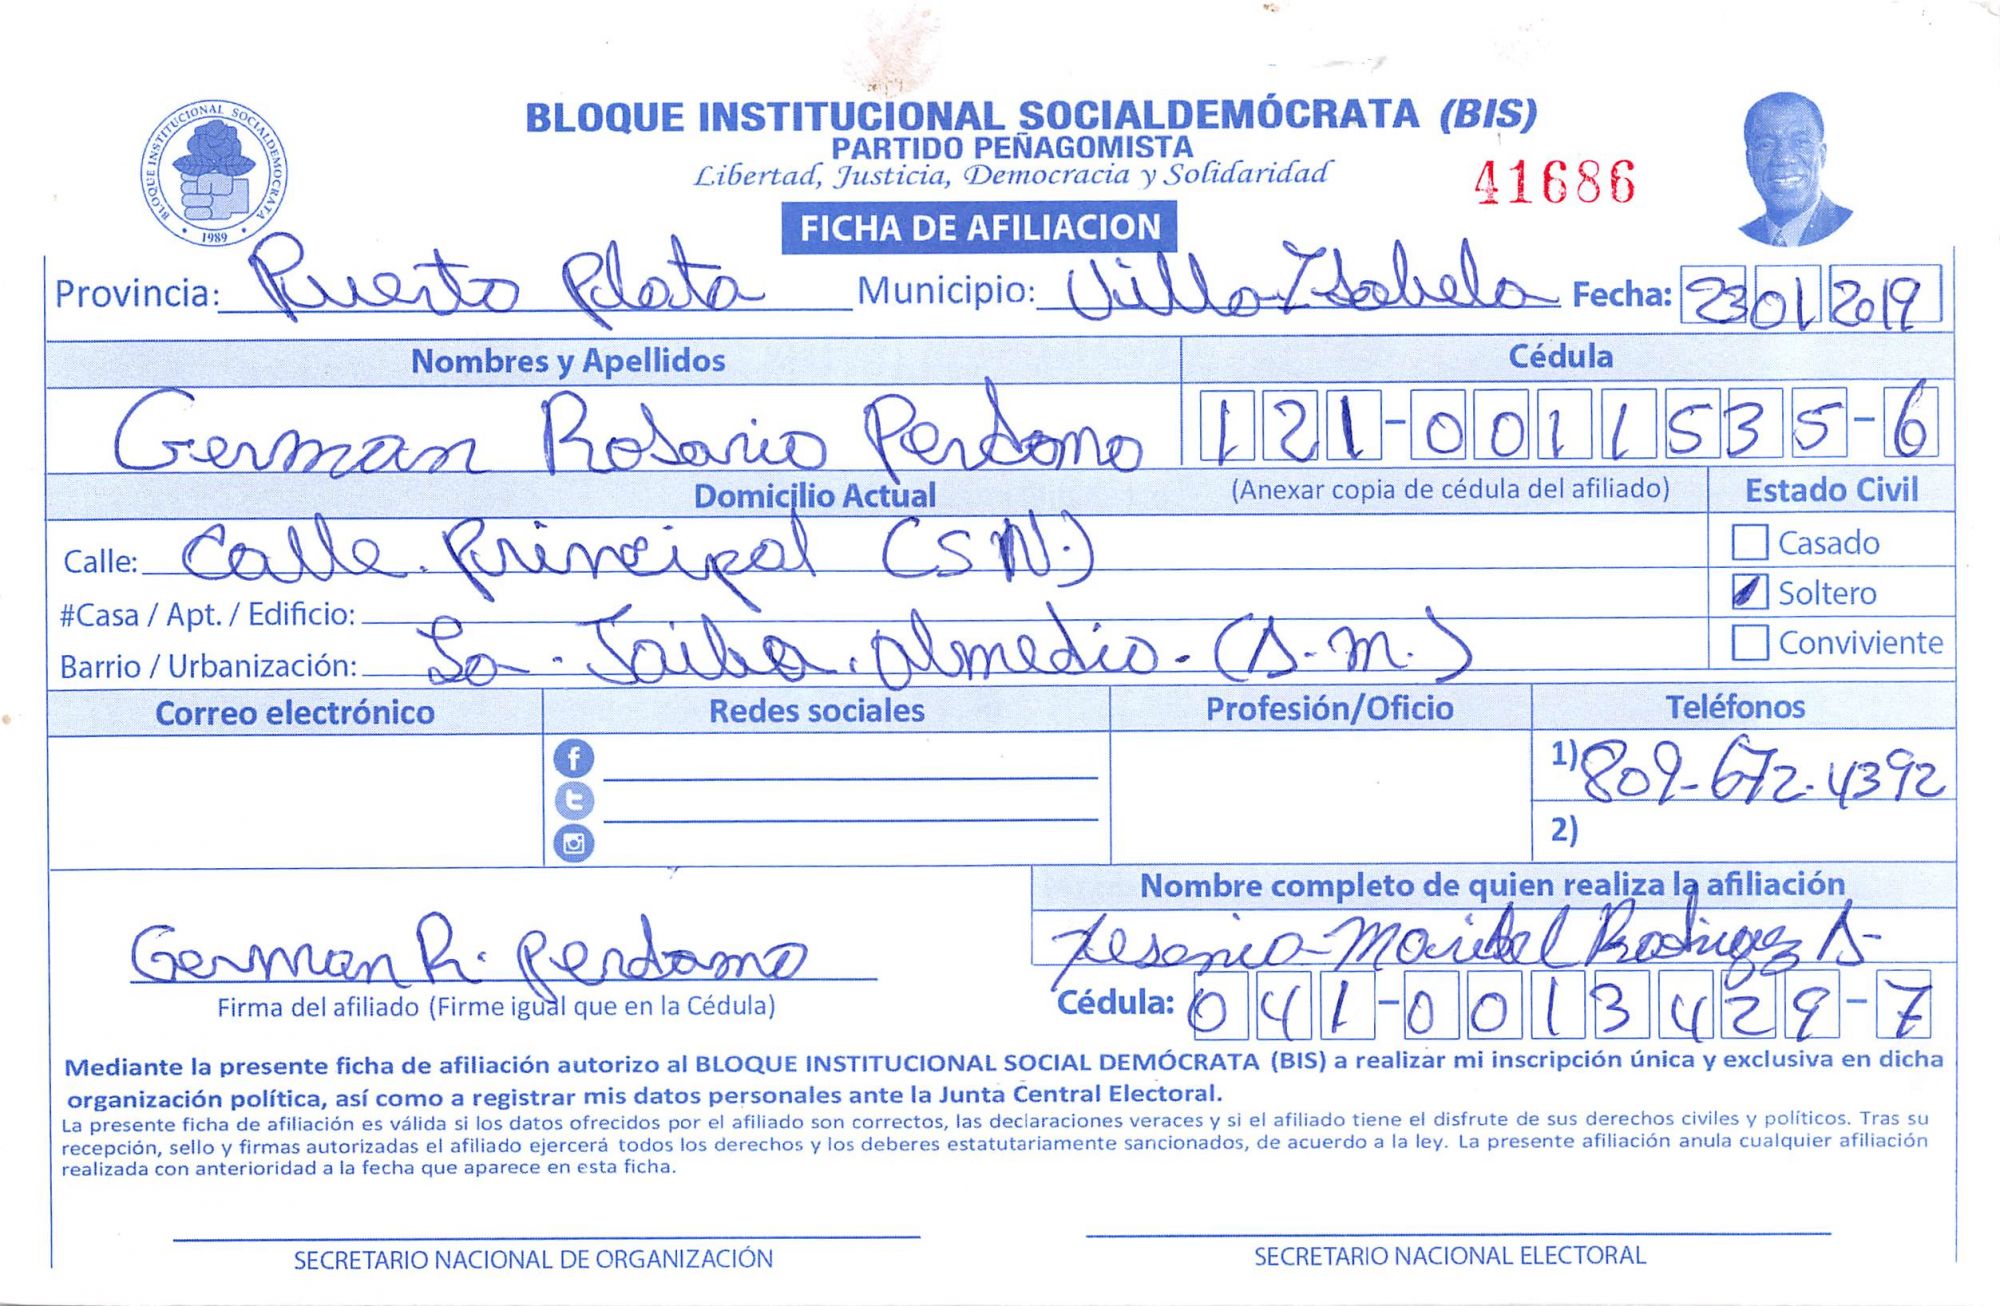 BLOQUE INSTITUCIONAL SOCIALDEMOCRATA
1989
BLOQUE INSTITUCIONAL SOCIALDEMÓCRATA (BIS)
PARTIDO PEÑAGOMISTA
Libertad, Justicia, Democracia y Solidaridad
41686
FICHA DE AFILIACION
Provincia: Puerto Plata Municipio: Villa Isabela Fecha: 23 01 2019
Nombres y Apellidos Cédula
German Rosario Perdomo 121-0011535-6
Domicilio Actual (Anexar copia de cédula del afiliado) Estado Civil
Calle: Calle Principal (SN.) Casado
#Casa / Apt. / Edificio: Soltero
Barrio / Urbanización: La Jaiba. almedio. (D.M.) Conviviente
Correo electrónico Redes sociales Profesión/Oficio Teléfonos
1) 809-672-4392
2)
Nombre completo de quien realiza la afiliación
German R. Perdomo Yesenia Maribel Rodriguez
Firma del afiliado (Firme igual que en la Cédula) Cédula: 041-0013429-7
Mediante la presente ficha de afiliación autorizo al BLOQUE INSTITUCIONAL SOCIAL DEMÓCRATA (BIS) a realizar mi inscripción única y exclusiva en dicha
organización política, así como a registrar mis datos personales ante la Junta Central Electoral.
La presente ficha de afiliación es válida si los datos ofrecidos por el afiliado son correctos, las declaraciones veraces y si el afiliado tiene el disfrute de sus derechos civiles y políticos. Tras su
recepción, sello y firmas autorizadas el afiliado ejercerá todos los derechos y los deberes estatutariamente sancionados, de acuerdo a la ley. La presente afiliación anula cualquier afiliación
realizada con anterioridad a la fecha que aparece en esta ficha.
SECRETARIO NACIONAL DE ORGANIZACIÓN SECRETARIO NACIONAL ELECTORAL